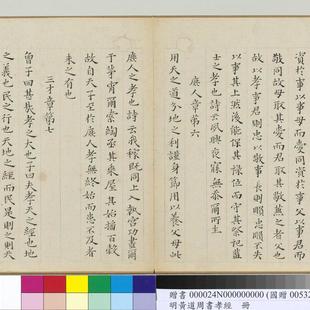 資於事父以事母而愛同資於事父以事君而
敬同故母取其愛而君取其敬兼之者父也
故以孝事君則忠以敬事長則順忠順不失
以事其上然後能保其祿位而守其祭祀蓋
士之孝也詩云夙興夜寐無忝爾所生
庶人章第六
用天之道分地之利謹身節用以養父母此
庶人之孝也詩云我稼既同上入執宮功晝爾
于茅宵爾索綯亟其乘屋其始播百穀
故自天子至於庶人孝無終始而患不及者
未之有也
三才章第七
曾子曰甚哉孝之大也子曰夫孝天之經也地
之義也民之行也天地之經而民是則之則天
贈書 000024N000000000 (國贈 00532
明黃道周書孝經 冊